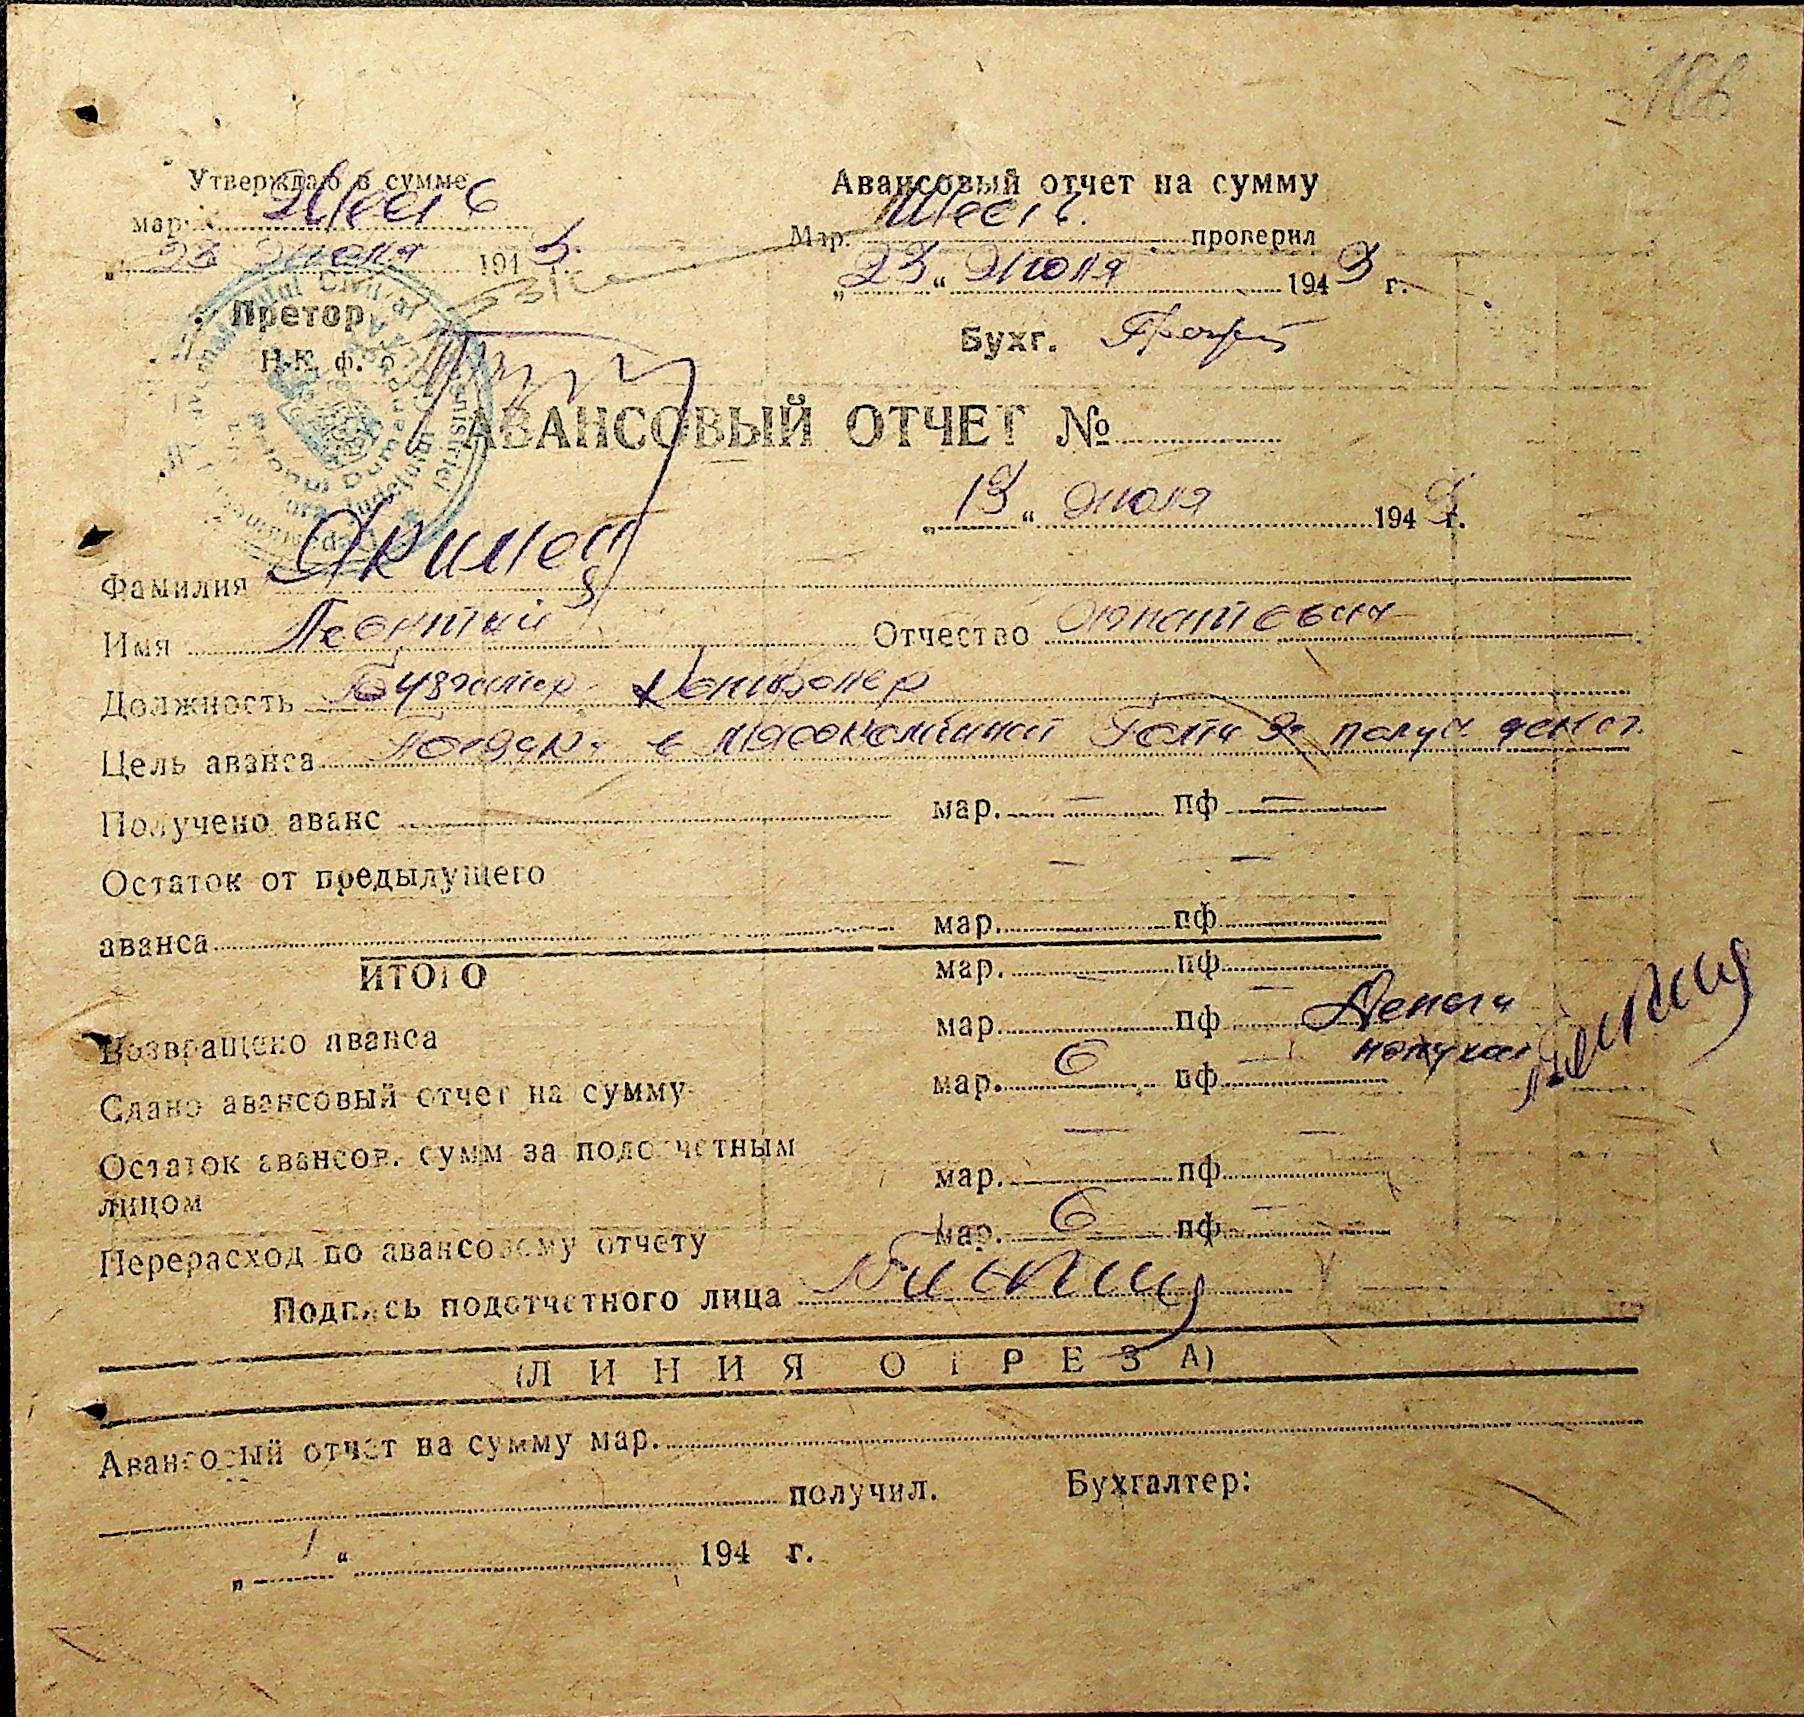 186
Утверждаю в сумме
мар. Шесть
„23 Июля 1943
Претор
Н.К. ф.
Авансовый отчет на сумму
Мар. Шесть проверил
„23“ Июля 1943 г.
Бухг.
АВАНСОВЫЙ ОТЧЕТ №
„19“ Июля 1943 г.
Фамилия Якимец
Имя Леонтий Отчество Игнатович
Должность
Цель аванса в получ денег.
Получено аванс мар. — пф —
Остаток от предыдущего — —
аванса мар. пф
ИТОГО мар. пф
Возвращено аванса мар. — пф —
Сдано авансовый отчет на сумму мар. 6 пф —
Деньги
получил
Остаток авансов. сумм за подотчетным — —
лицом мар. пф
Перерасход по авансовому отчету мар. 6 пф —
Подпись подотчетного лица
(ЛИНИЯ ОТРЕЗА)
Авансовый отчет на сумму мар.
получил. Бухгалтер:
„ “ 194 г.